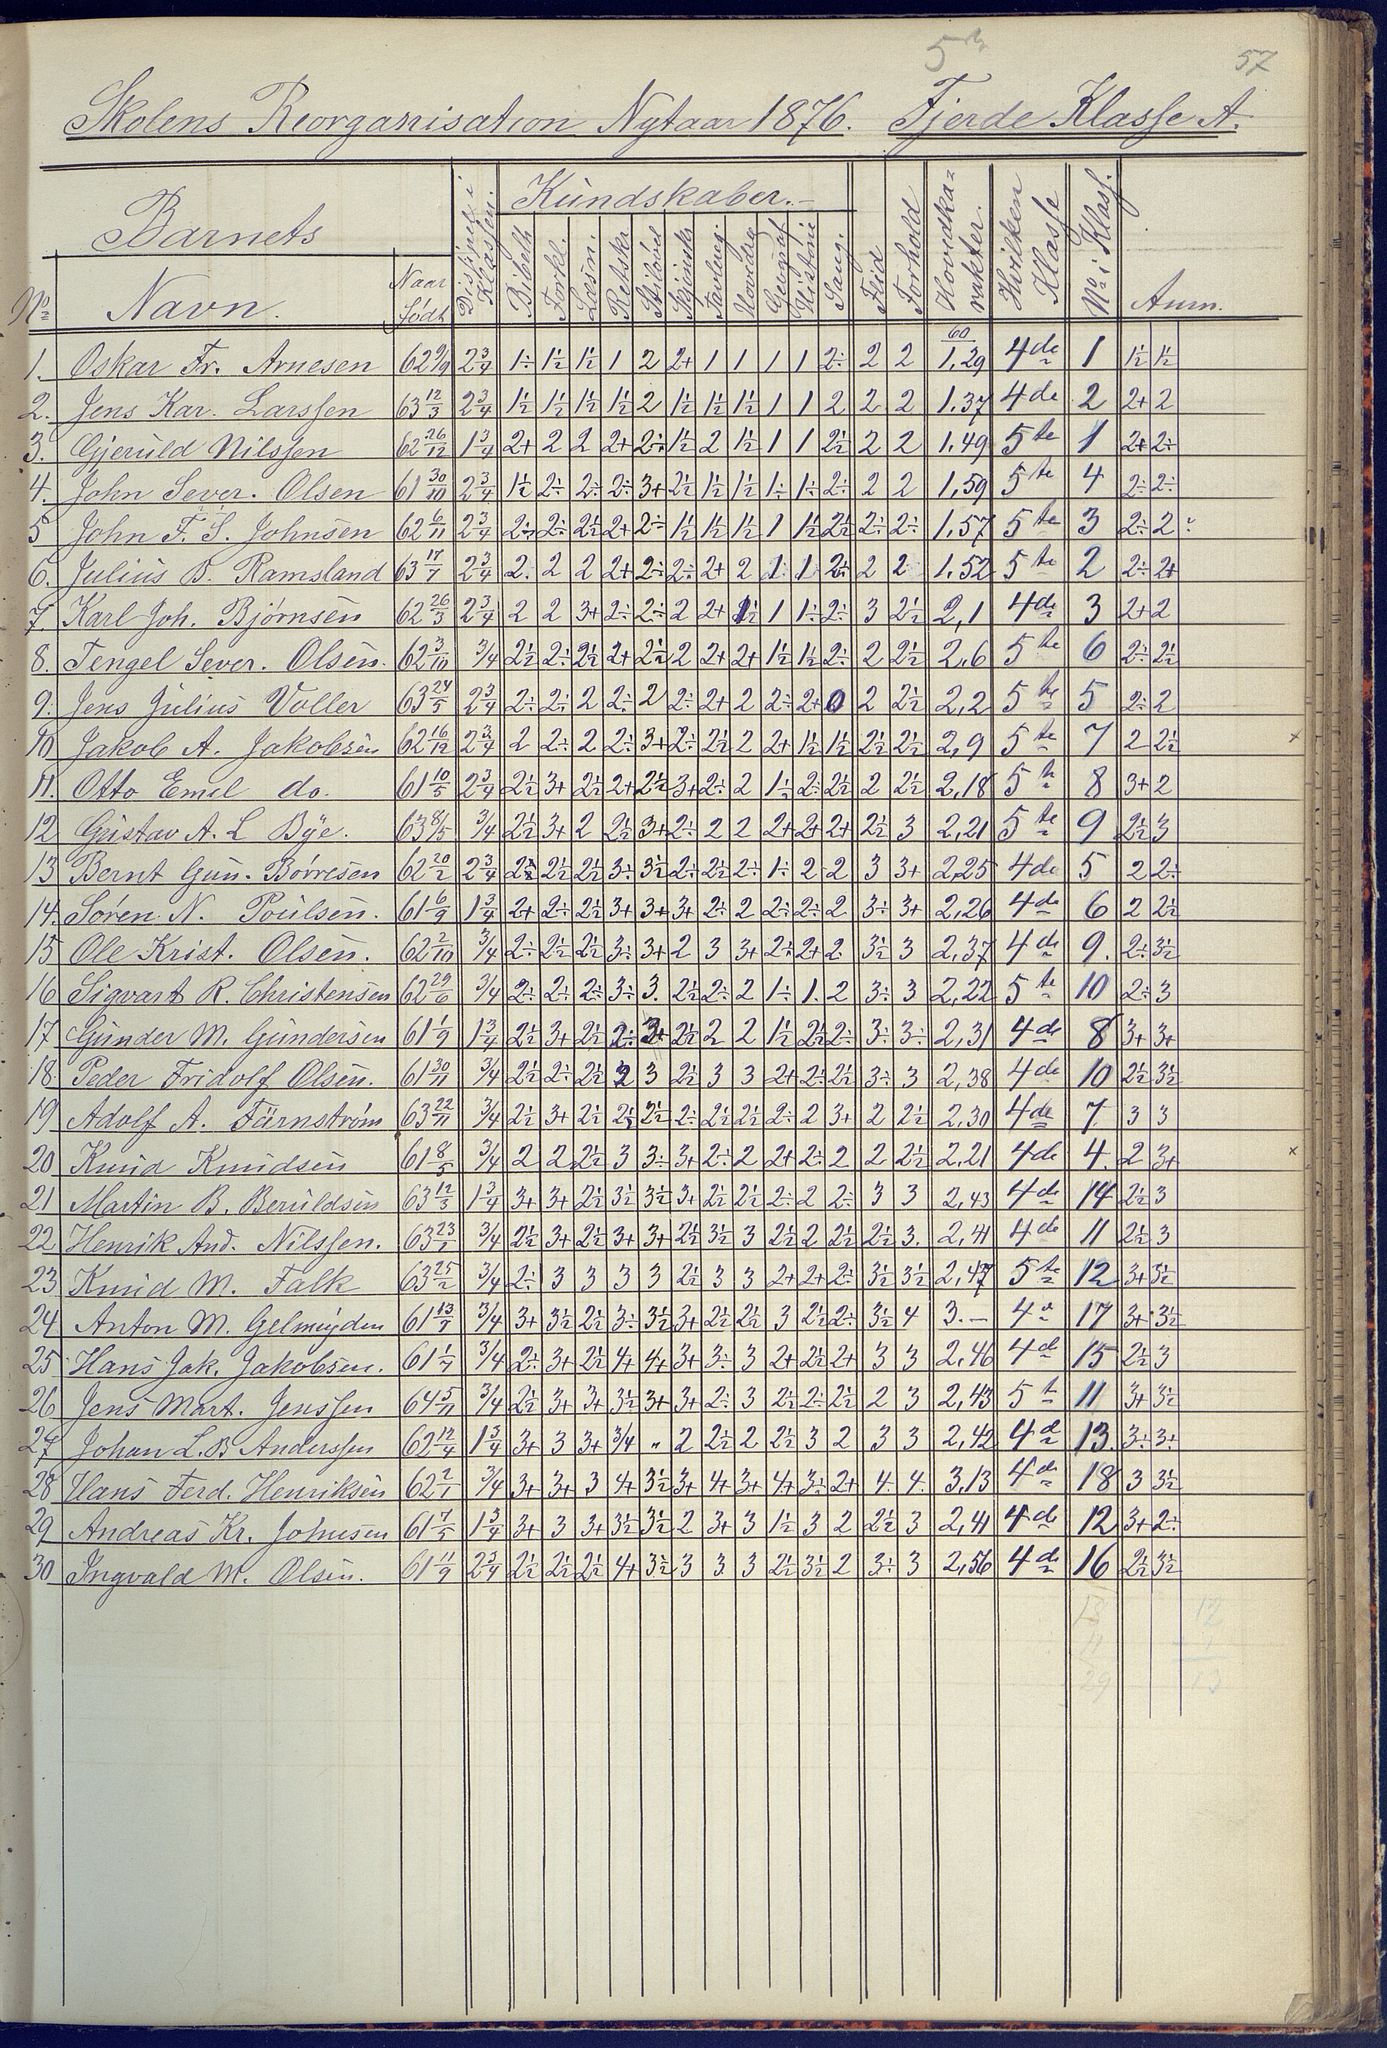 57
Skolens Reorganisation Nytaar 1876. Fjerde Klasse A.
Barnets
Kundskaber.
No Navn. Naar født Discipel i Klassen. Bibelh. Forkl. Læsn. Retskr. Skjønskr. Tavlreg. Hovedreg Geograf Historie Sang. Flid Forhold Hovedkarakter. Hvilken Klasse No i Klass. Anm.
1. Oskar Fr. Arnesen 2 3/4 1÷ 1½ 1½ 1 2 2+ 1 1 1 1 2÷ 2 2 1,29 4de 1 1½ 1½
2. Jens Kar. Larssen 63 12/3 2 3/4 1½ 1½ 1½ 1½ 2 1½ 1½ 1½ 1 1 2 2 2 1.37 4de 2 2+ 2
3. Gjeruld Nilssen 62 26/12 1 3/4 2+ 2 2 2+ 2÷ 1½ 2 1½ 1 1 2½ 2 2 1.49 5te 1 2+ 2÷
4. John Sever. Olsen 61 30/10 2 3/4 1½ 2÷ 2÷ 2÷ 3+ 2½ 1½ 1½ 1÷ 1÷ 2÷ 2 2 1,59 5te 4 2÷ 2÷
5 John F. S. Johnsen 62 6/11 2 3/4 2÷ 2÷ 2½ 2+ 2÷ 1½ 1½ 1½ 1 1½ 2½ 2÷ 2÷ 1.57 5te 3 2÷ 2÷
6. Julius B. Ramsland 63 17/7 2 3/4 2. 2 2 2+ 2÷ 2÷ 2+ 2 1÷ 1 2÷ 2 2 1.52 5te 2 2÷ 2+
7. Karl Joh. Bjørnsen 62 26/3 2 3/4 2 2 3+ 2÷ 2÷ 2 2+ 1½ 1 1÷ 2÷ 3 2½ 2,1 4de 3 2+ 2
8. Tengel Sever. Olsen. 62 3/10 3/4 2½ 2÷ 2½ 2+ 2½ 2 2+ 2+ 1½ 1½ 2÷ 2 2½ 2,6 5te 6 2÷ 2½
9. Jens Julius Voller 63 24/5 2 3/4 2÷ 2÷ 2 2÷ 2 2÷ 2+ 2 2÷ 2+ 0 2 2½ 2,2 5te 5 2÷ 2
10 Jakob A. Jakobsen 62 16/12 2 3/4 2 2÷ 2 2÷ 3+ 2÷ 2½ 2 2+ 1½ 1½ 2½ 2½ 2,9 5te 7 2 2½ x
11. Otto Emil do. 61 10/5 2 3/4 2½ 3+ 2½ 2+ 2½ 3+ 2÷ 2 1½ 2÷ 2½ 2 2½ 2,18 5te 8 3+ 2
12 Gustav A. L Bye. 63 8/5 3/4 2½ 3+ 2 2½ 3+ 2÷ 2 2 2+ 2+ 2+ 2½ 3 2,21 5te 9 2½ 3
13 Bernt Gun. Børresen 62 20/2 2 3/4 2½ 2½ 2½ 3÷ 3½ 2÷ 2½ 2÷ 1÷ 2 2 3 3+ 2,25 4de 5 2 2÷
14. Søren N. Poulsen. 61 6/9 1 3/4 2+ 2÷ 2½ 3+ 3+ 3+ 2÷ 2 2÷ 2÷ 2 3÷ 3+ 2,26 4de 6 2 2½
15 Ole Krist. Olsen. 62 2/10 3/4 2÷ 2½ 2½ 3÷ 3+ 2 3 3+ 2÷ 2+ 2 3½ 3 2,37 4de 9. 2÷ 3½
16 Sigvart R. Christensen 62 29/6 3/4 2÷ 2÷ 2÷ 3÷ 3. 2½ 2÷ 2 1÷ 1. 2 3÷ 3 2,22 5te 10 2÷ 3
17 Gunder M. Gundersen 61 1/9 1 3/4 2½ 3+ 2½ 2÷ 3+ 2½ 2 2 1½ 2½ 2÷ 3÷ 3÷ 2,31 4de 8 3+ 3+
18. Peder Fridolf Olsen. 61 30/11 3/4 2½ 2÷ 2½ 2 3 2½ 3 3 2+ 2÷ 2½ 3÷ 3 2,38 4de 10 2½ 3½
19 Adolf A. Färnström 63 22/11 3/4 2½ 3+ 2½ 2½ 2½ 2÷ 2½ 2½ 2÷ 2 3+ 2 2½ 2,30 4de 7. 3 3
20 Knud Knudsen 61 8/5 3/4 2 2 2½ 3 3÷ 3+ 2÷ 2 2+ 2÷ 2 2 2½ 2.21 4de 4. 2 3+ x
21 Martin B. Beruldsen 63 12/3 1 3/4 3+ 3+ 2½ 3½ 3½ 3+ 2½ 2½ 2÷ 2 2÷ 3 3 2,43 4de 14 2½ 3
22 Henrik And. Nilssen. 63 23/1 3/4 2½ 3+ 2½ 3+ 3+ 2½ 3½ 3 2½ 2 2½ 2½ 3. 2,41 4de 11 2½ 3
23 Knud M. Falk 63 25/2 3/4 2÷ 3 3 3 3 2½ 3 3 2+ 2+ 2÷ 3½ 3½ 2,47 5te 12 3+ 3½
24 Anton M. Gelmuyden 61 13/7 3/4 3+ 3½ 2½ 3÷ 3½ 3+ 2½ 2½ 3 2½ 2÷ 3½ 4 3.— 4de 17 3+ 3½
25 Hans Jak. Jakobsen. 61 1/7 3/4 2÷ 3+ 2½ 4+ 4+ 3+ 3÷ 3 2+ 2½ 2+ 3 3 2,46 4de 15 2½ 3
26 Jens Mart. Jenssen 64 5/11 3/4 2½ 3+ 3+ 3½ 3+ 3+ 2÷ 3 2½ 2÷ 2½ 2 3 2,43 5te 11 3+ 3½
27 Johan L. B Anderssen 62 12/4 1 3/4 3+ 3 3+ 3/4 „ 2 2½ 2 2½ 3 2 3 3 2,42 4de 13. 3÷ 3÷
28 Hans Ferd. Henriksen 62 2/1 3/4 3+ 3+ 3 4+ 3½ 3+ 4+ 3+ 4+ 3÷ 2+ 4. 4. 3,13 4de 18 3 3½
29 Andreas Kr. Johnsen 61 7/5 1 3/4 3+ 3 3+ 3½ 3½ 2 3+ 3 1½ 3 2 2½ 3 2,41 4de 12 3+ 2÷
30 Ingvald M. Olsen. 61 11/9 2 3/4 2½ 2½ 2½ 4+ 3½ 3 3 3 2½ 3½ 2 3÷ 3 2,56 4de 16 2½ 3½
12
1
29 13